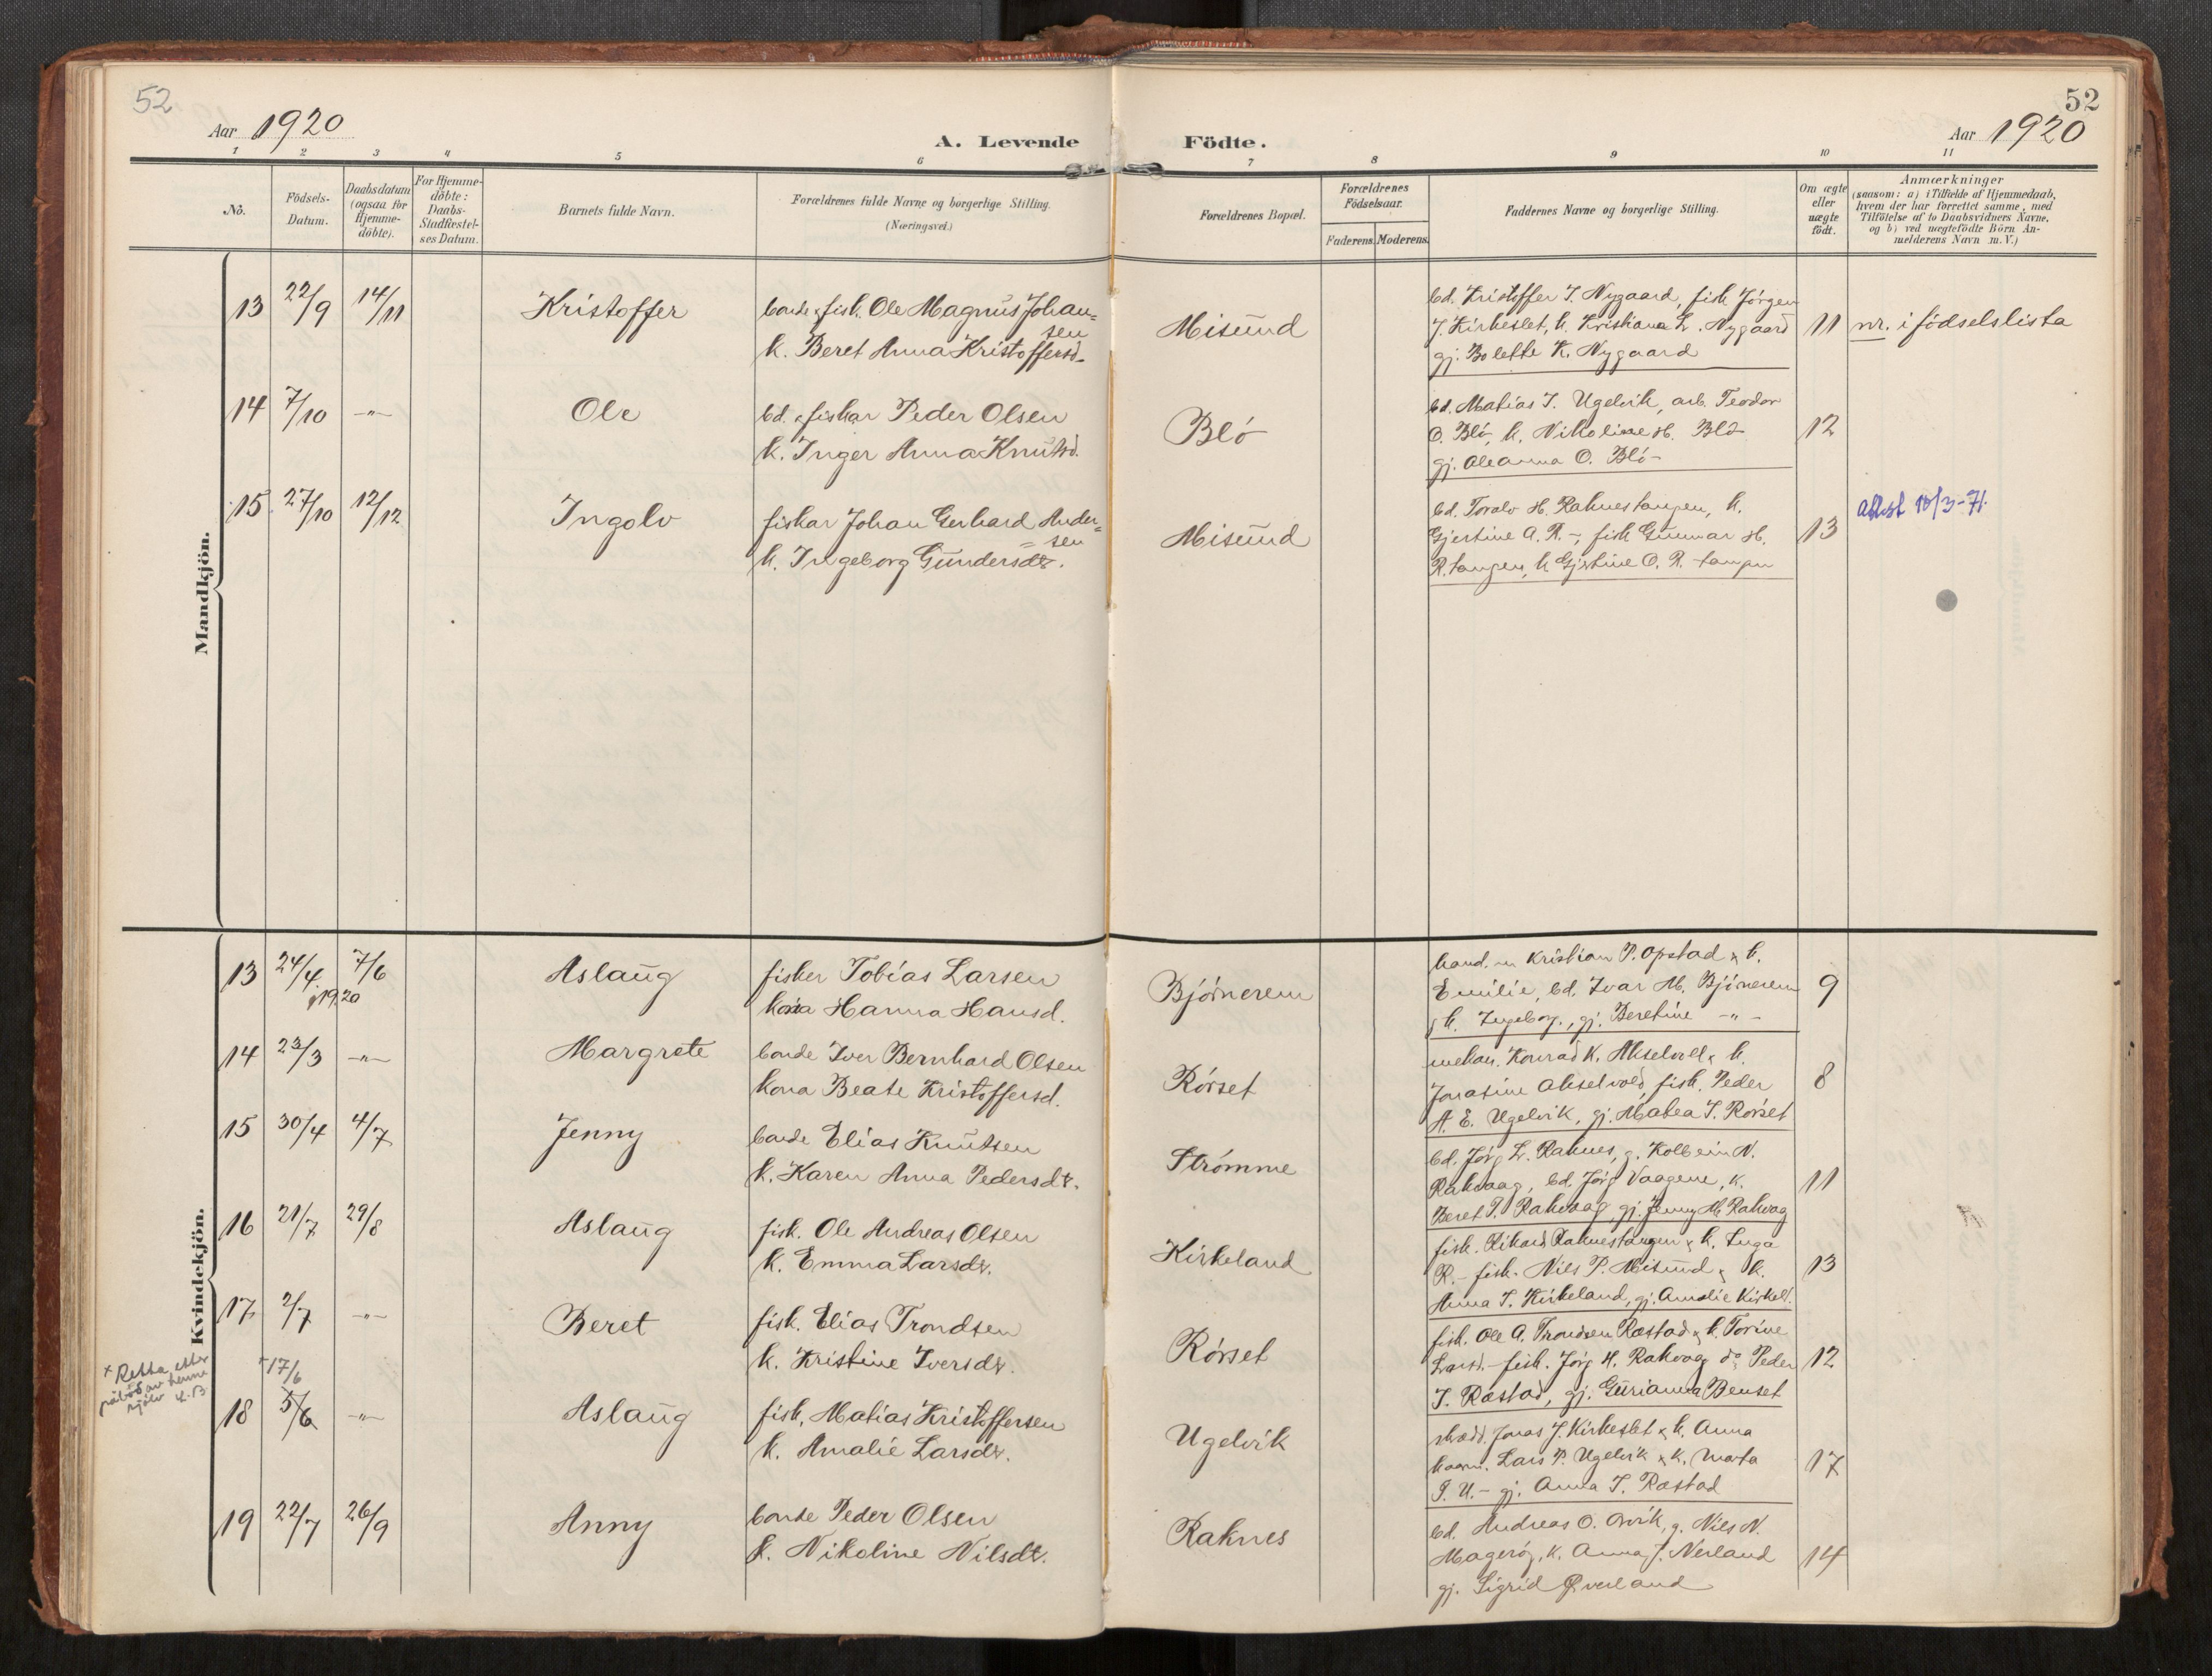 52
52
Aar 1920
A. Levende Födte.
Aar 1920
1 2 3 4 5 6 7 8 9 10 11
No.
Födsels-
Datum.
Daabsdatum
(ogsaa för
Hjemme-
döbte).
For Hjemme-
döbte:
Daabs-
Stadfæstel-
ses Datum.
Barnets fulde Navn.
Forældrenes fulde Navne og borgerlige Stilling.
(Næringsvei.)
Forældrenes Bopæl.
Forældrenes
Födselsaar.
Faderens. Moderens.
Faddernes Navne og borgerlige Stilling.
Om ægte
eller
uægte
födt.
Anmærkninger
(saasom: a) i Tilfælde af Hjemmedaab,
hvem der har forrettet samme, med
Tilföielse af to Daabsvidners Navne,
og b) ved uægtefödte Börn An-
melderens Navn m. V.)
Mandkjön.
13 22/9 14/11 Kristoffer
bonde & fisk. Ole Magnus Johan=
sen
k. Beret Anna Kristoffersd.
Misund
bd. Kristoffer J. Nygaard, fisk Jörgen
J. Kirkeslet, k. Kristiana L. Nygaard
gj. Bolette K. Nygaard
11 nr. i födselslista
14 7/10 -"- Ole
bd. & fiskar Peder Olsen
k. Inger Anna Knutsd.
Blö
bd. Matias J. Ugelvik, arb. Teodor
O. Blö, k. Nikoline H. Blö
gj. Oleanna O. Blö
12
15 27/10 12/12 Ingolv
fiskar Johan Gerhard Ander=
=sen
k. Ingeborg Gundersdtr.
Misund
bd. Toralv H. Raknestangen, k.
Gjertine A. R. -, fisk Gunnar H.
R. tangen, k Gjertine O. R. -tangen
13
Attest 10/3-71.
Kvindekjön.
13 24/4 1920 7/6 Aslaug
fisker Tobias Larsen
kona Hanna Hansd.
Björnerem
hand. m Kristian P. Opstad & k.
Emilie, bd. Ivar M. Björnerem
& k. Ingeborg., gj. Beretine -"-
9
14 23/3 -"- Margrete
bonde Iver Bernhard Olsen
kona Beate Kristoffersd.
Rörset
mekan. Konrad K. Akselvoll & k.
Jonasine Akselvold, fisk. Peder
A. E. Ugelvik, gj. Matea J. Rörset
8
15 30/4 4/7 Jenny
bonde Elias Knutsen
k. Karen Anna Pedersdtr.
Strömme
bd. Jörg. L. Raknes, g. Kolbein N.
Rakvaag, bd. Jörg Vaagene, k.
Beret P. Rakvaag, gj. Jenny M. Rakvag
11
16 21/7 29/8 Aslaug
fisk. Ole Andreas Olsen
k. Emma Larsdtr.
Kirkeland
fisk. Rikard Raknestangen & k. Inga
R. - fisk. Nils P. Misund & k.
Anna J. Kirkeland, gj. Amalie Kirkel.
13
17 2/7 -"- Beret
fisk. Elias Trondsen
k. Kristine Iversdtr.
Rörset
fisk. Ole A. Trondsen Røstad & k. Torine
Larsd. - fisk. Jörg H. Rakvag do Peder
J. Røstad, gj. Gurianna Benset
12
+ Retta etter
påbod av henne
sjølv
+17/6
18 5/6 -"- Aslaug
fisk. Matias Kristoffersen
k. Amalie Larsdtr.
Ugelvik
skrædd. Jonas J. Kirkeslet & k. Anna
kaarm. Lars P. Ugelvik & k. Marta
P. U. - gj. Anna J. Røstad
17
19 22/7 26/9 Anny
bonde Peder Olsen
k. Nikoline Nilsdtr.
Raknes
bd. Andreas O. Orvik, g. Nils N.
Magerøy, k. Anna J. Nerland
gj. Sigrid Øverland
14